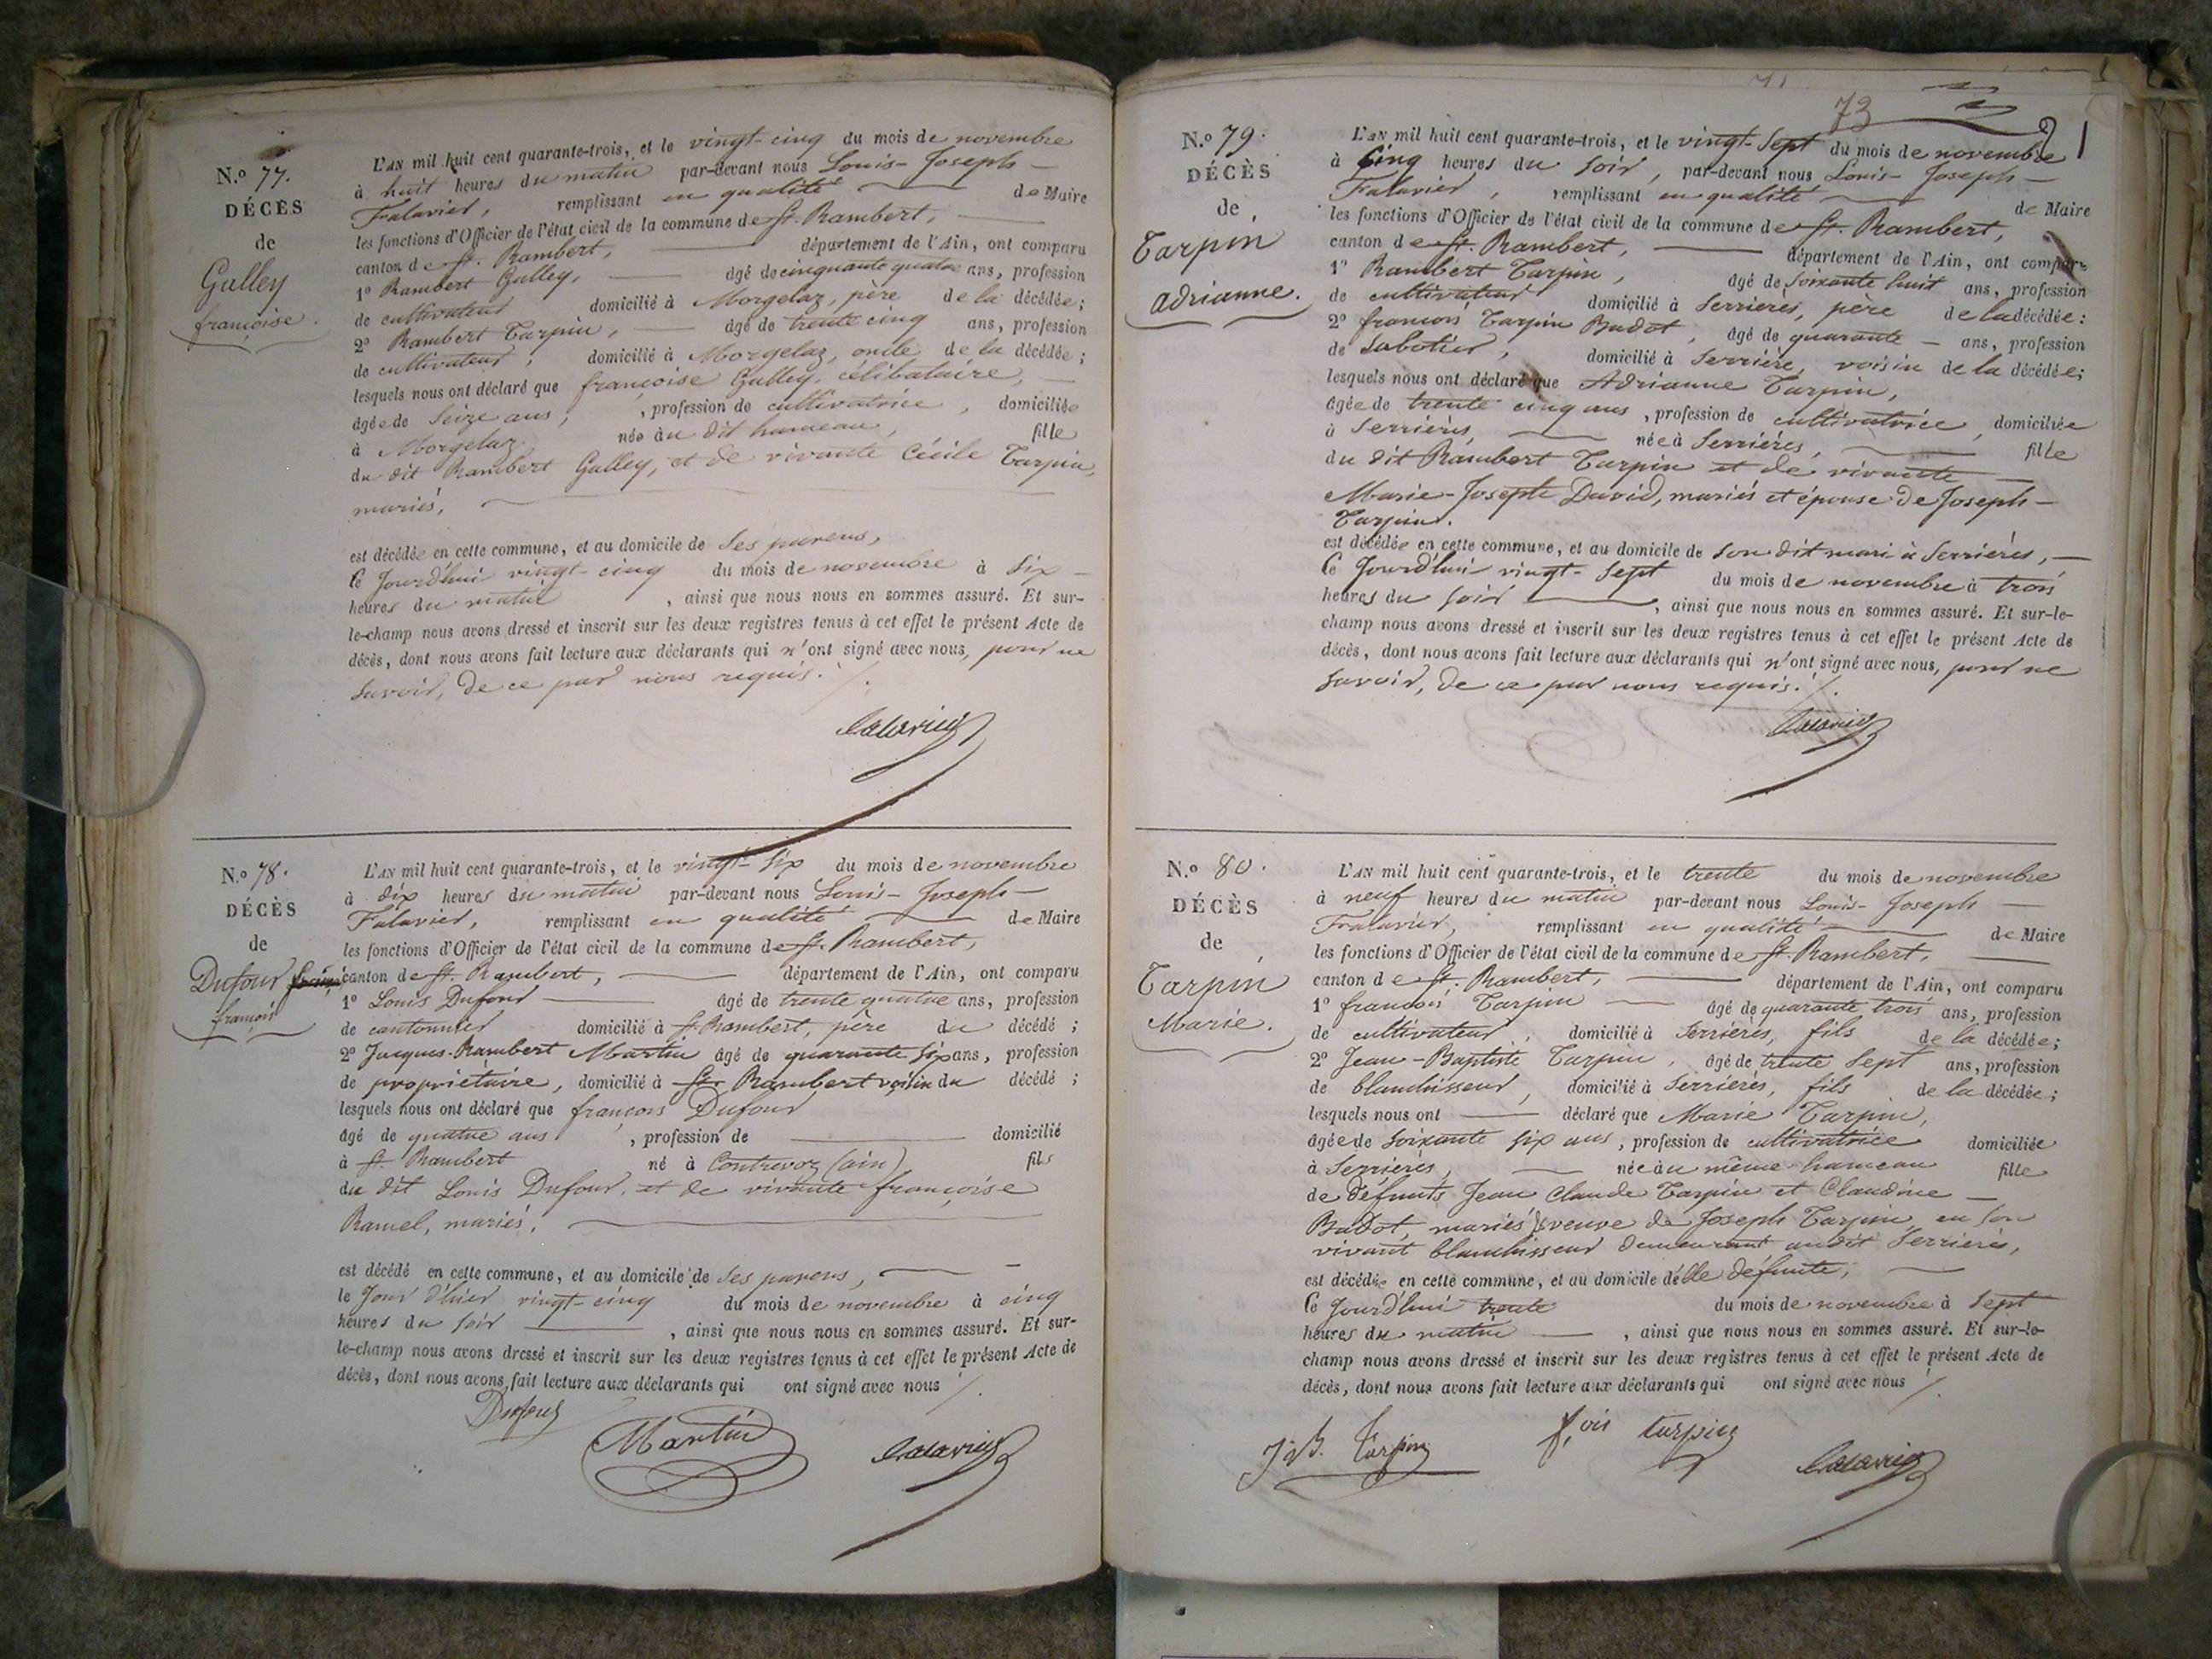 N.º 77.
DÉCÈS
de
Galley
françoise.
L'AN mil huit cent quarante-trois, et le vingt-cinq du mois de novembre
à huit heures du matin par-devant nous Louis-Joseph-
Falavier, remplissant en qualité de Maire
les fonctions d'Officier de l'état civil de la commune de St. Rambert,
canton de St. Rambert, département de l'Ain, ont comparu
1º Rambert Galley, âgé de cinquante quatre ans, profession
de cultivateur domicilié à Morgelaz, père de la décédée;
2º Rambert Tarpin, âgé de trente cinq ans, profession
de cultivateur, domicilié à Morgelaz, oncle de la décédée;
lesquels nous ont déclaré que françoise Galley, célibataire,
âgée de Seize ans, , profession de cultivatrice, domiciliée
à Morgelaz née au dit hameau, fille
du dit Rambert Galley, et de vivante Cécile Tarpin,
mariés,
est décédée en cette commune, et au domicile de Ses parens,
Ce Jourd'hui vingt-cinq du mois de novembre à Six
heures du matin , ainsi que nous nous en sommes assuré. Et sur-
le-champ nous avons dressé et inscrit sur les deux registres tenus à cet effet le présent Acte de
décès, dont nous avons fait lecture aux déclarants qui n'ont signé avec nous, pour ne
Savoir, de ce par nous requis. /.
Falavier
N.º 78.
DÉCÈS
de
Dufour
françois
L'AN mil huit cent quarante-trois, et le vingt-Six du mois de novembre
à dix heures du matin par-devant nous Louis-Joseph-
Falavier, remplissant en qualité de Maire
les fonctions d'Officier de l'état civil de la commune de St. Rambert,
canton de St. Rambert, département de l'Ain, ont comparu
1º Louis Dufour âgé de trente quatre ans, profession
de cantonnier domicilié à St. Rambert, père du décédé;
2º Jacques-Rambert Martin âgé de quarante Six ans, profession
de propriétaire, domicilié à St. Rambert voisin du décédé;
lesquels nous ont déclaré que françois Dufour
âgé de quatre ans , profession de domicilié
à St. Rambert né à Contrevoz (ain) fils
du dit Louis Dufour, et de vivante françoise
Ramel, mariés,
est décédé en cette commune, et au domicile de Ses parens,
le Jour d'hier vingt-cinq du mois de novembre à cinq
heures du Soir , ainsi que nous nous en sommes assuré. Et sur-
le-champ nous avons dressé et inscrit sur les deux registres tenus à cet effet le présent Acte de
décès, dont nous avons fait lecture aux déclarants qui ont signé avec nous /.
Dufour
Martin
Falavier
73
N.º 79.
DÉCÈS
de
Tarpin
adrianne.
L'AN mil huit cent quarante-trois, et le vingt-Sept du mois de novembre
à Cinq heures du Soir, par-devant nous Louis-Joseph-
Falavier, remplissant en qualité de Maire
les fonctions d'Officier de l'état civil de la commune de St. Rambert,
canton de St. Rambert, département de l'Ain, ont comparu
1º Rambert Tarpin, âgé de Soixante huit ans, profession
de cultivateur domicilié à Serrières, père de la décédée:
2º françois Tarpin Budot, âgé de quarante - ans, profession
de Sabotier, domicilié à Serrière, voisin de la décédée;
lesquels nous ont déclaré que Adrianne Tarpin,
âgée de trente cinq ans, profession de cultivatrice, domiciliée
à Serrières, née à Serrières, fille
du dit Rambert Tarpin et de vivante
Marie-Josephe David, mariés et épouse de Joseph-
Tarpin.
est décédée en cette commune, et au domicile de Son dit mari à Serrières,
Ce Jourd'hui vingt-Sept du mois de novembre à trois
heures du Soir , ainsi que nous nous en sommes assuré. Et sur-le-
champ nous avons dressé et inscrit sur les deux registres tenus à cet effet le présent Acte de
décès, dont nous avons fait lecture aux déclarants qui n'ont signé avec nous, pour ne
Savoir, de ce par nous requis. /.
Falavier
N.º 80.
DÉCÈS
de
Tarpin
Marie.
L'AN mil huit cent quarante-trois, et le trente du mois de novembre
à neuf heures du matin par-devant nous Louis-Joseph
Falavier, remplissant en qualité de Maire
les fonctions d'Officier de l'état civil de la commune de St. Rambert,
canton de St. Rambert, département de l'Ain, ont comparu
1º françois Tarpin âgé de quarante trois ans, profession
de cultivateur, domicilié à Serrières, fils de la décédée;
2º Jean-Baptiste Tarpin, âgé de trente Sept ans, profession
de blanchisseur, domicilié à Serrières, fils de la décédée;
lesquels nous ont déclaré que Marie Tarpin,
âgée de Soixante Six ans, profession de cultivatrice domiciliée
à Serrières, née au même hameau fille
de défunts Jean Claude Tarpin et Claudine
Budot, mariés, veuve de Joseph Tarpin, en Son
vivant blanchisseur demeurant audit Serrières,
est décédée en cette commune, et au domicile d'elle défunte,
Ce Jourd'hui trente du mois de novembre à Sept
heures du matin , ainsi que nous nous en sommes assuré. Et sur-le-
champ nous avons dressé et inscrit sur les deux registres tenus à cet effet le présent Acte de
décès, dont nous avons fait lecture aux déclarants qui ont signé avec nous /.
J.B. Tarpin
f,ois turpin
Falavier